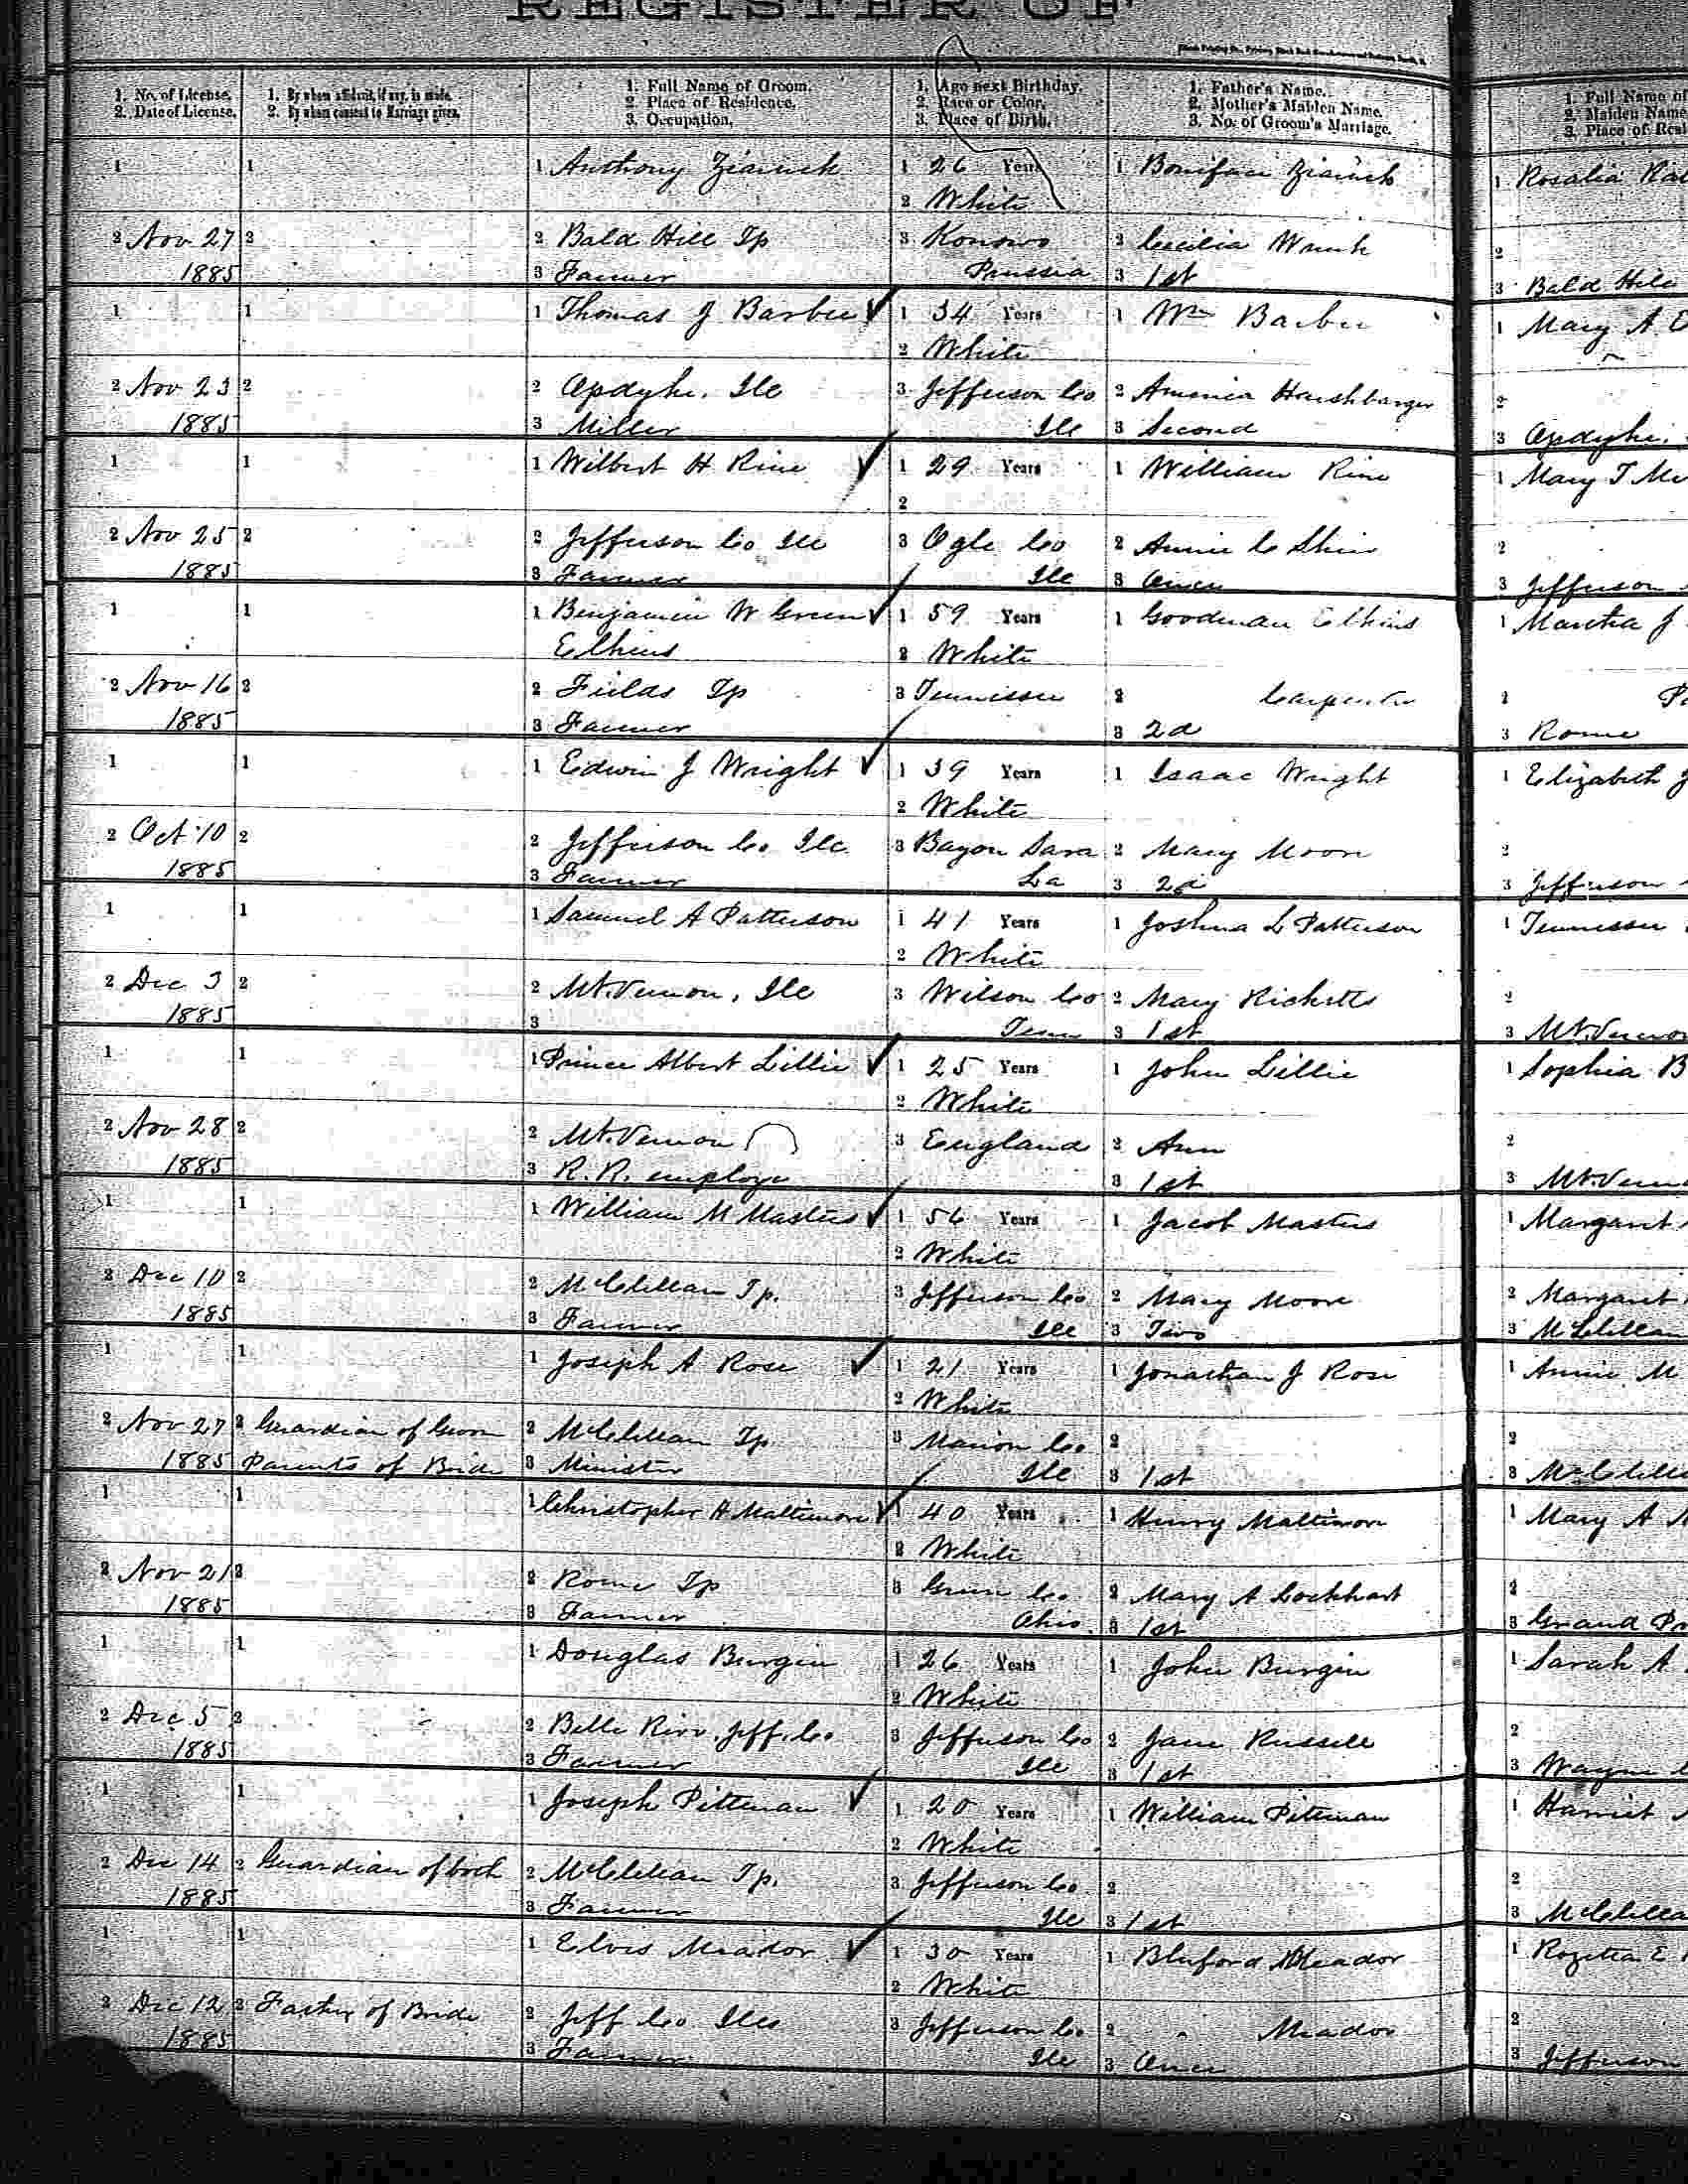 REGISTER OF
1. No. of License.
2. Date of License.
1. By whom affidavit, if any, is made.
2. By whom consent to Marriage given.
1. Full Name of Groom.
2. Place of Residence.
3. Occupation.
1. Age next Birthday.
2. Race or Color.
3. Place of Birth.
1. Father's Name.
2. Mother's Maiden Name.
3. No. of Groom's Marriage.
1. Full Name of
2. Maiden Name
3. Place of Resi
1 1 1 Anthony 1 26 Years 1 Boniface 1 Rosalia
2 White
2 Nov 27 2 2 Bald Hill Tp 3 2 Cecilia 2
1885 3 Farmer Prussia 3 1st 3 Bald Hill
1 1 1 Thomas J Barbee 1 34 Years 1 Wm Barbee 1 Mary A
2 White
2 Nov 23 2 2 Opdyke, Ill 3 Jefferson Co 2 Harshbarger 2
1885 3 Miller Ill 3 Second 3 Opdyke,
1 1 1 Wilbert H Rine 1 29 Years 1 William Rine 1 Mary
2
2 Nov 25 2 2 Jefferson Co Ill 3 Ogle Co 2 Annie C 2
1885 3 Farmer Ill 3 Once 3 Jefferson
1 1 1 Benjamin W Green 1 59 Years 1 Goodman Elkins 1 Martha J
Elkins 2 White
2 Nov 16 2 2 Fields Tp 3 Tennessee 2 Carpenter 2
1885 3 Farmer 3 2d 3 Rome
1 1 1 Edwin J Wright 1 39 Years 1 Isaac Wright 1 Elizabeth J
2 White
2 Oct 10 2 2 Jefferson Co Ill. 3 Bayou Sara 2 Mary Moore 2
1885 3 Farmer La 3 2d 3 Jefferson
1 1 1 Samuel A Patterson 1 41 Years 1 Joshua L Patterson 1 Tennessee
2 White
2 Dec 3 2 2 Mt. Vernon, Ill 3 Wilson Co 2 Mary Ricketts 2
1885 3 Tenn 3 1st 3 Mt. Vernon
1 1 1 Prince Albert Lillie 1 25 Years 1 John Lillie 1 Sophia B
2 White
2 Nov 28 2 2 Mt. Vernon 3 England 2 Ann 2
1885 3 R. R. employe 3 1st 3 Mt. Vern
1 1 1 William M Masters 1 56 Years 1 Jacob Masters 1 Margaret
2 White
2 Dec 10 2 2 McClellan Tp. 3 Jefferson Co 2 Mary Moore 2 Margaret
1885 3 Farmer Ill 3 Two 3 McClellan
1 1 1 Joseph A Rose 1 21 Years 1 Jonathan J Rose 1 Annie M
2 White
2 Nov 27 2 Guardian of Groom 2 McClellan Tp. 3 Marion Co 2 2
1885 Parents of Bride 3 Minister Ill 3 1st 3 McClella
1 1 1 Christopher H Maltimore 1 40 Years 1 Henry Maltimore 1 Mary A
2 White
2 Nov 21 2 2 Rome Tp 3 Green Co 2 Mary A Lockhart 2
1885 3 Farmer Ohio 3 1st 3 Grand Pr
1 1 1 Douglas Burgin 1 26 Years 1 John Burgin 1 Sarah A
2 White
2 Dec 5 2 2 Belle Rive, Jeff. Co. 3 Jefferson Co 2 Jane Russell 2
1885 3 Farmer Ill 3 1st 3 Wayne
1 1 1 Joseph Pittman 1 20 Years 1 William Pittman 1 Harriet
2 White
2 Dec 14 2 Guardian of both 2 McClellan Tp. 3 Jefferson Co 2 2
1885 3 Farmer Ill 3 1st 3 McClella
1 1 1 Elvis Meador 1 30 Years 1 Bluford Meador 1 Rozetta E
2 White
2 Dec 12 2 Father of Bride 2 Jeff Co Ills 3 Jefferson Co 2 Meador 2
1885 3 Farmer Ill 3 Once 3 Jefferson